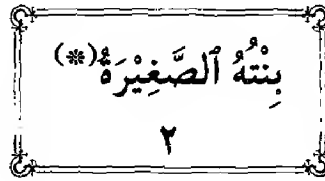 بِنْتُهُ ٱلصَّغِيْرَةُ(*)
٢